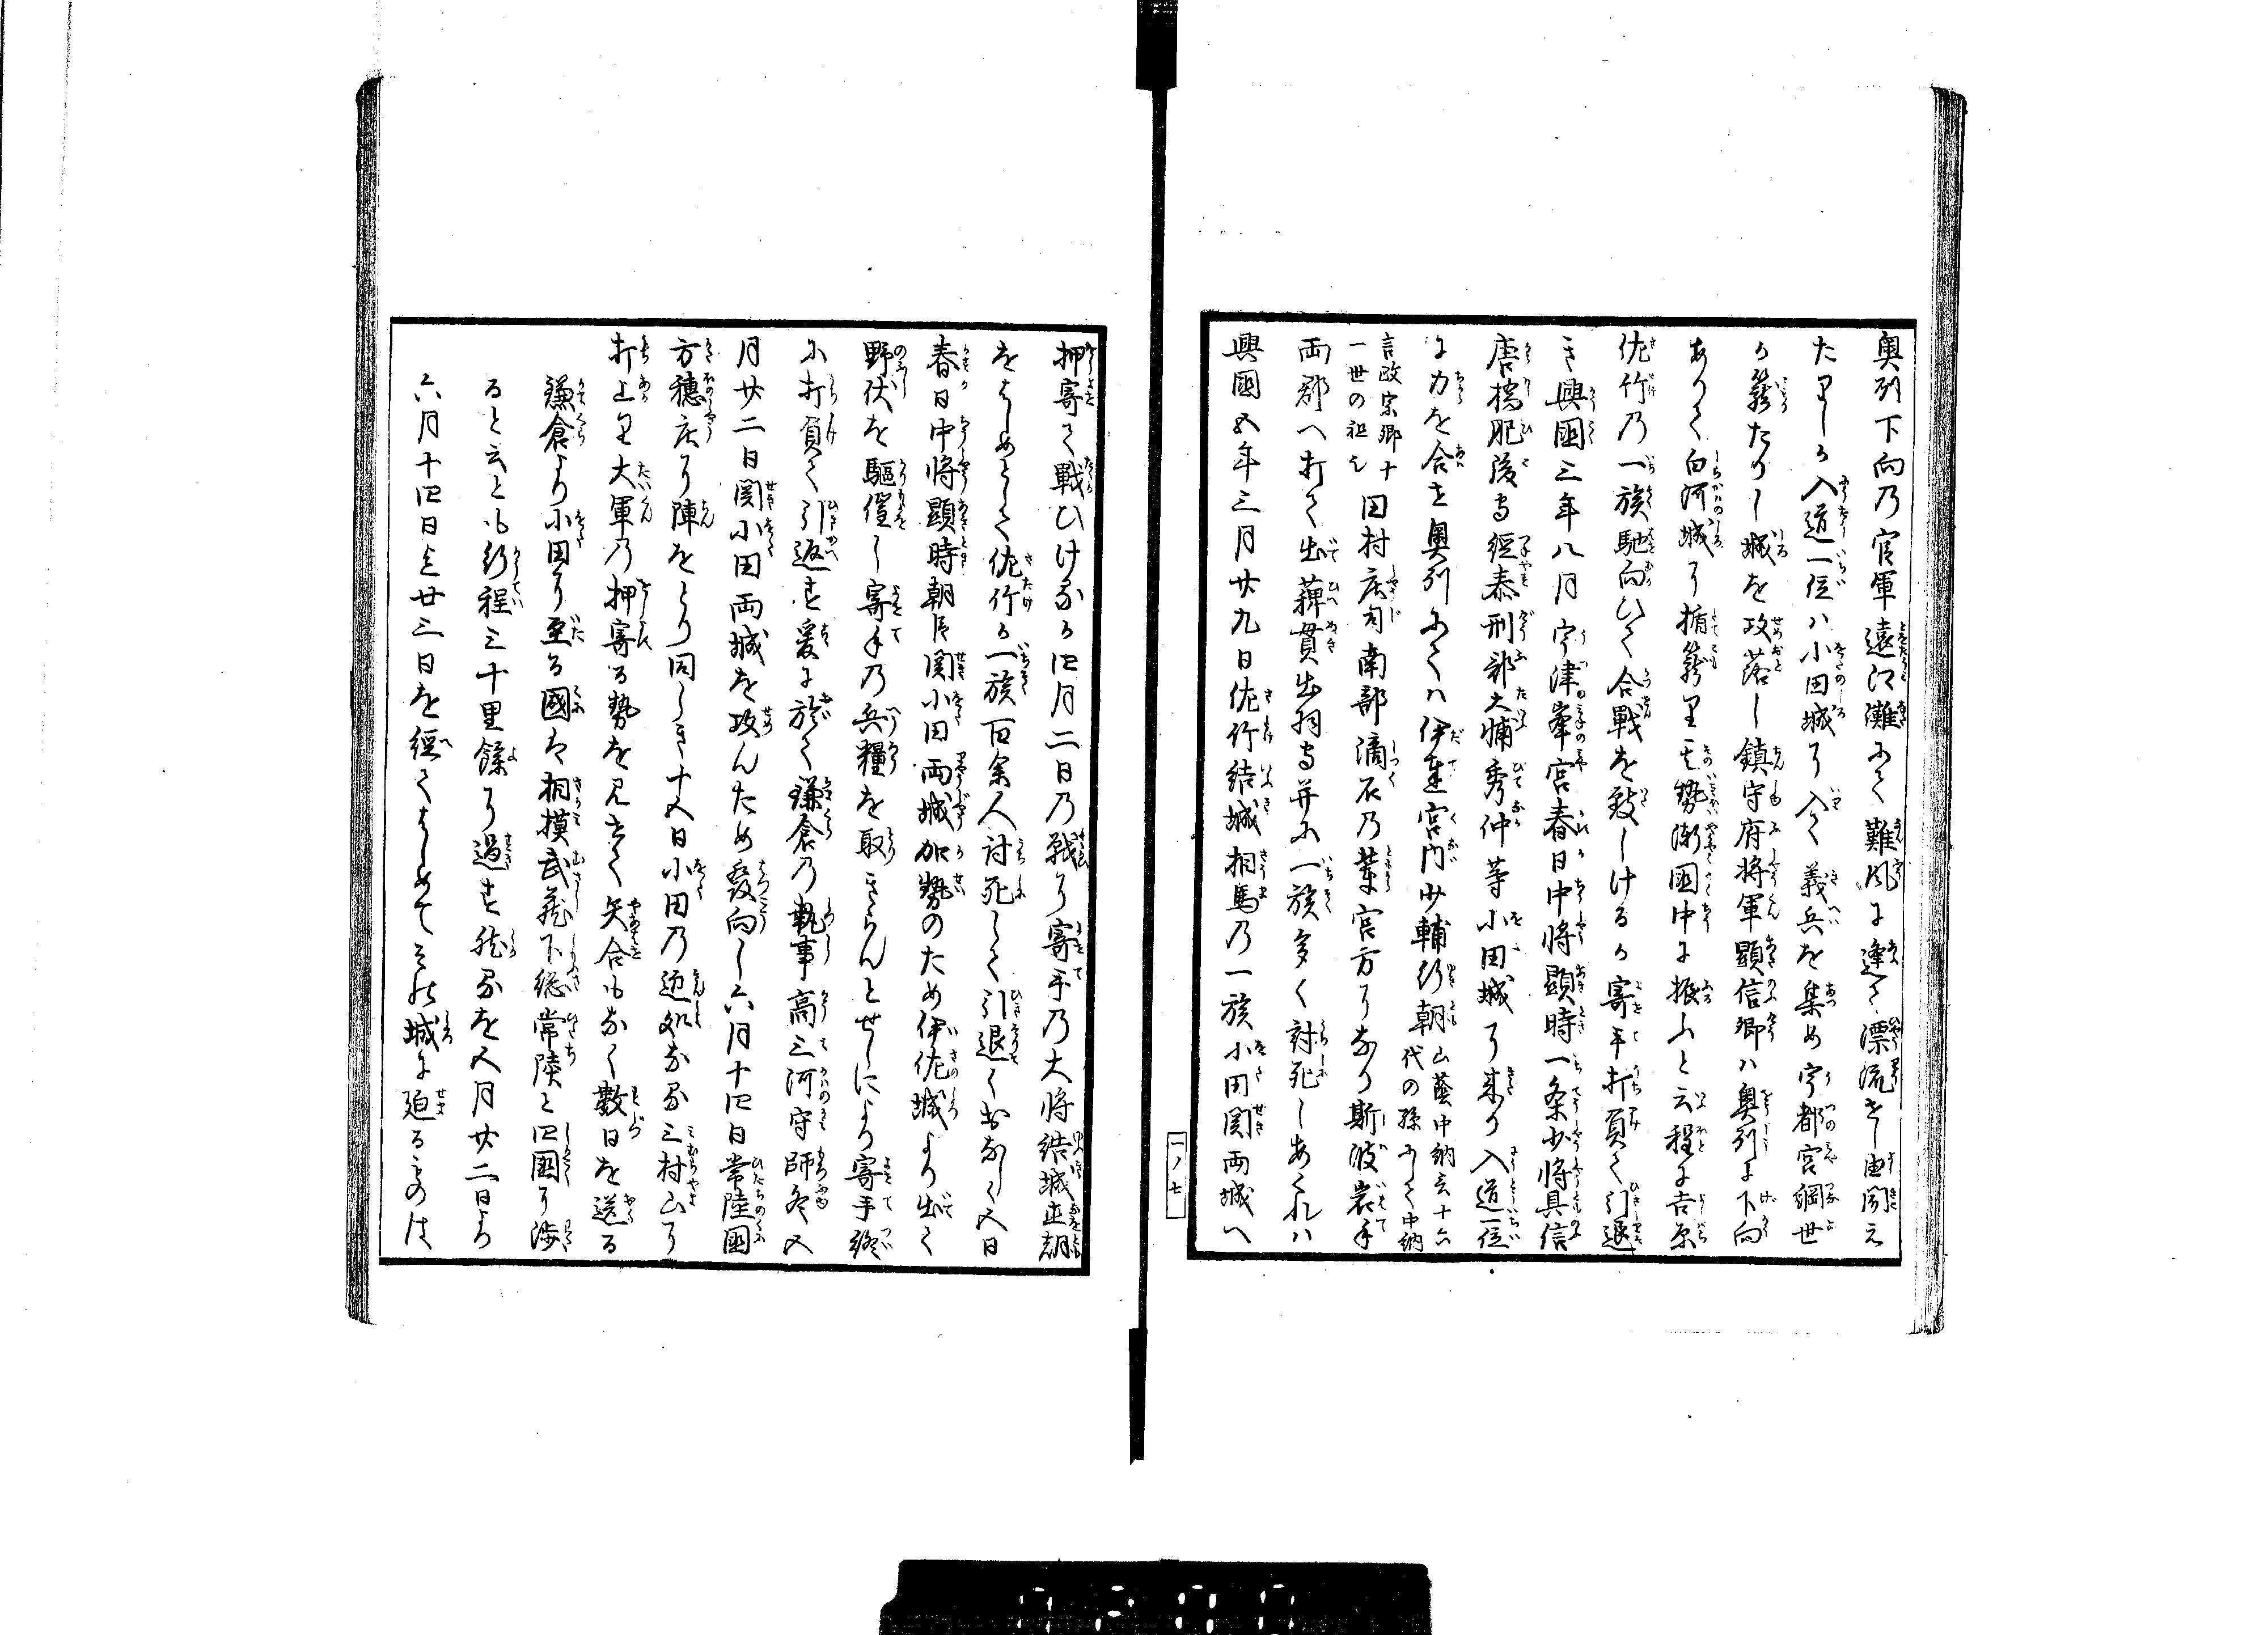 奥列下向乃官軍遠江灘にて難風に逢て漂流せし由聞え
たりしか入道一位ハ小田城に入て義兵を集め宇都宮綱世
か籠たりし城を攻落し鎮守府将軍顕信卿ハ奥列に下向
ありて白河城に楯籠り其勢漸国中に振ふと云程に吉原
佐竹乃一族馳向ひて合戦を致しけるか寄手打負て引退
き興國三年八月宇津峯宮春日中将顕時一条少将具信
唐橋肥後守経泰刑部大輔秀仲等小田城に来り入道一位
に力を合せ奥列にてハ伊達宮内少輔行朝山蔭中納言十六代の孫にして中納
言政宗卿十一世の祖也田村庄司南部滴石乃輩官方になり斯波岩手
両郡へ打て出薭貫出羽守并に一族多く討死しあくれハ
興國五年三月廿九日佐竹結城相馬乃一族小田関両城へ
押寄て戦ひけるか四月二日乃戦に寄手乃大将結城直朝
をはしめとして佐竹か一族百余人討死して引退く おなしく五日
春日中将顕時朝臣関小田両城加勢のため伊佐城より出て
野伏を駆催し寄手乃兵糧を取きらんとせしにより寄手終
に打負て引返す爰に於て鎌倉乃執事高三河守師冬五
月廿二日関小田両城を攻んため発向し六月十四日常陸國
方穂庄に陣をとり同しき十五日小田乃近処なる三村山に
打上り大軍乃押寄る勢を見せて矢合もなく数日を送る
鎌倉より小田に至る國は相摸武蔵下総常陸と四國に渉
ると云とも行程三十里餘に過す然るを五月廿二日より
六月十四日迄廿三日を経てはしめて其城に廻るものは